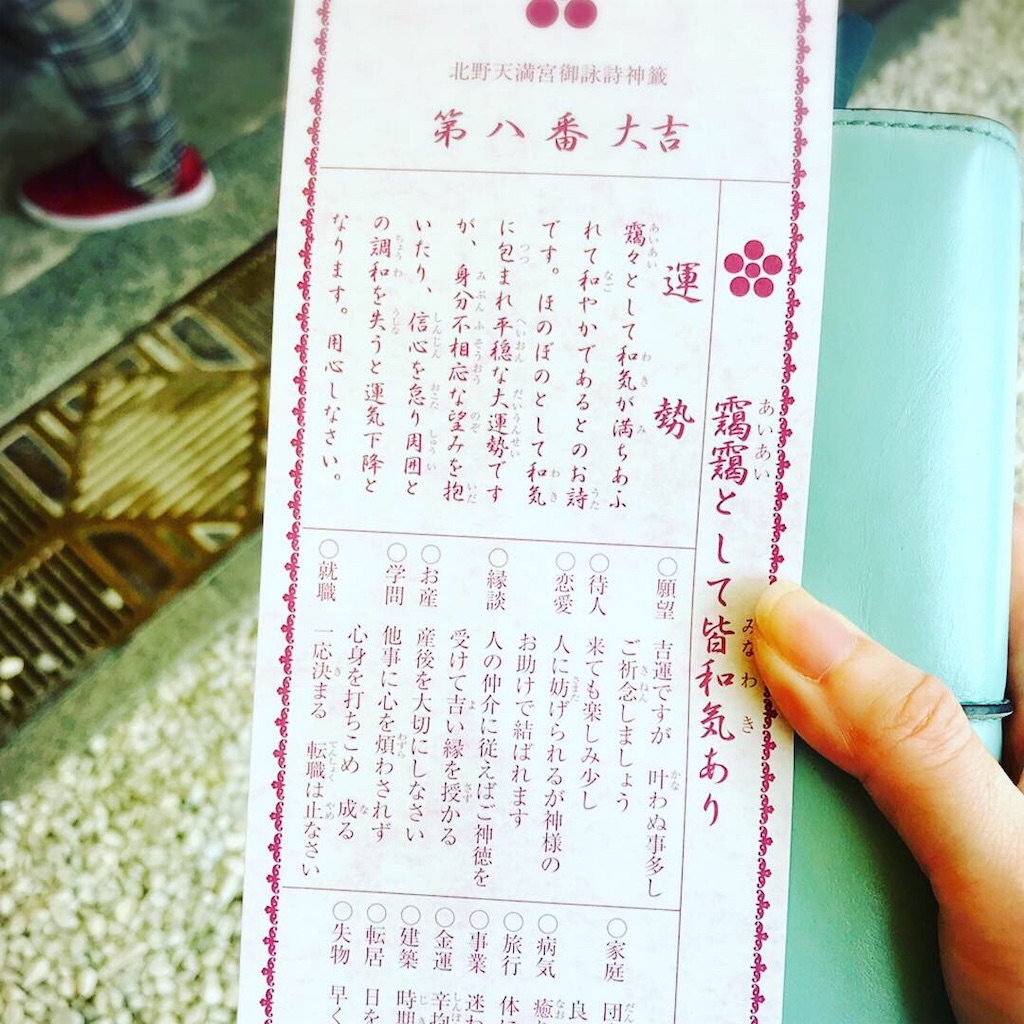 北野天満宮御詠詩神籤
第八番 大吉
靄靄として皆和気あり
運勢
靄々として和気が満ちあふ
れて和やかであるとのお詩
です。ほのぼのとして和気
に包まれ平穏な大運勢です
が、身分不相応な望みを抱
いたり、信心を怠り周囲と
の調和を失うと運気下降と
なります。用心しなさい。
○願望 吉運ですが 叶わぬ事多し
ご祈念しましょう
○待人 来ても楽しみ少し
○恋愛 人に妨げられるが神様の
お助けで結ばれます
○縁談 人の仲介に従えばご神徳を
受けて吉い縁を授かる
○お産 産後を大切にしなさい
○学問 他事に心を煩わされず
心身を打ちこめ 成る
○就職 一応決まる 転職は止なさい
○家庭 団
良
○病気 癒
○旅行 体に
○事業 迷わ
○金運 辛抱
○建築 時期
○転居 日を
○失物 早く